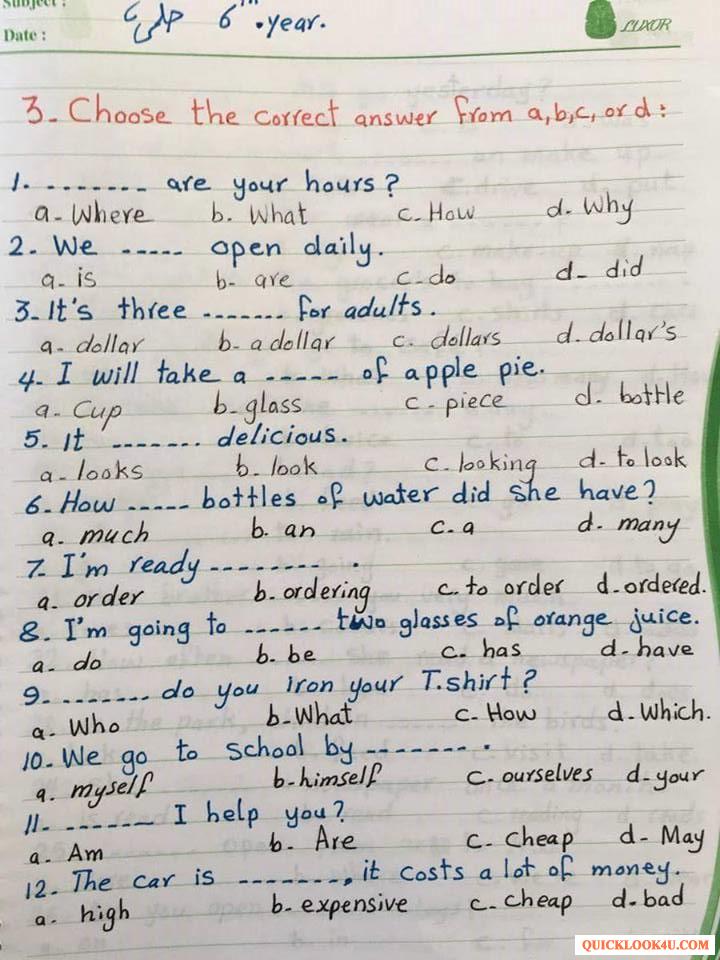 Subject :
6th year.
Date :
LUXOR
3. Choose the correct answer from a,b,c, or d :
1. -------- are your hours ?
a- Where b. What c. How d. Why
2. We ----- open daily.
a- is b- are c- do d- did
3. It's three ------- for adults .
a- dollar b- a dollar c. dollars d. dollar's
4. I will take a ----- of apple pie.
a- Cup b. glass c - piece d. bottle
5. It ------- delicious.
a- looks b. look c. looking d- to look
6. How ----- bottles of water did she have ?
a. much b. an c. a d. many
7. I'm ready -------- .
a. order b. ordering c. to order d. ordered.
8. I'm going to ------ two glasses of orange juice.
a. do b. be c. has d- have
9. -------- do you iron your T.shirt ?
a. Who b. What c. How d. Which.
10. We go to school by ------- .
a. myself b. himself c. ourselves d- your
11. ------- I help you ?
a. Am b. Are c. Cheap d- May
12. The car is -------, it costs a lot of money.
a. high b. expensive c. cheap d. bad
QUICKLOOK4U.COM